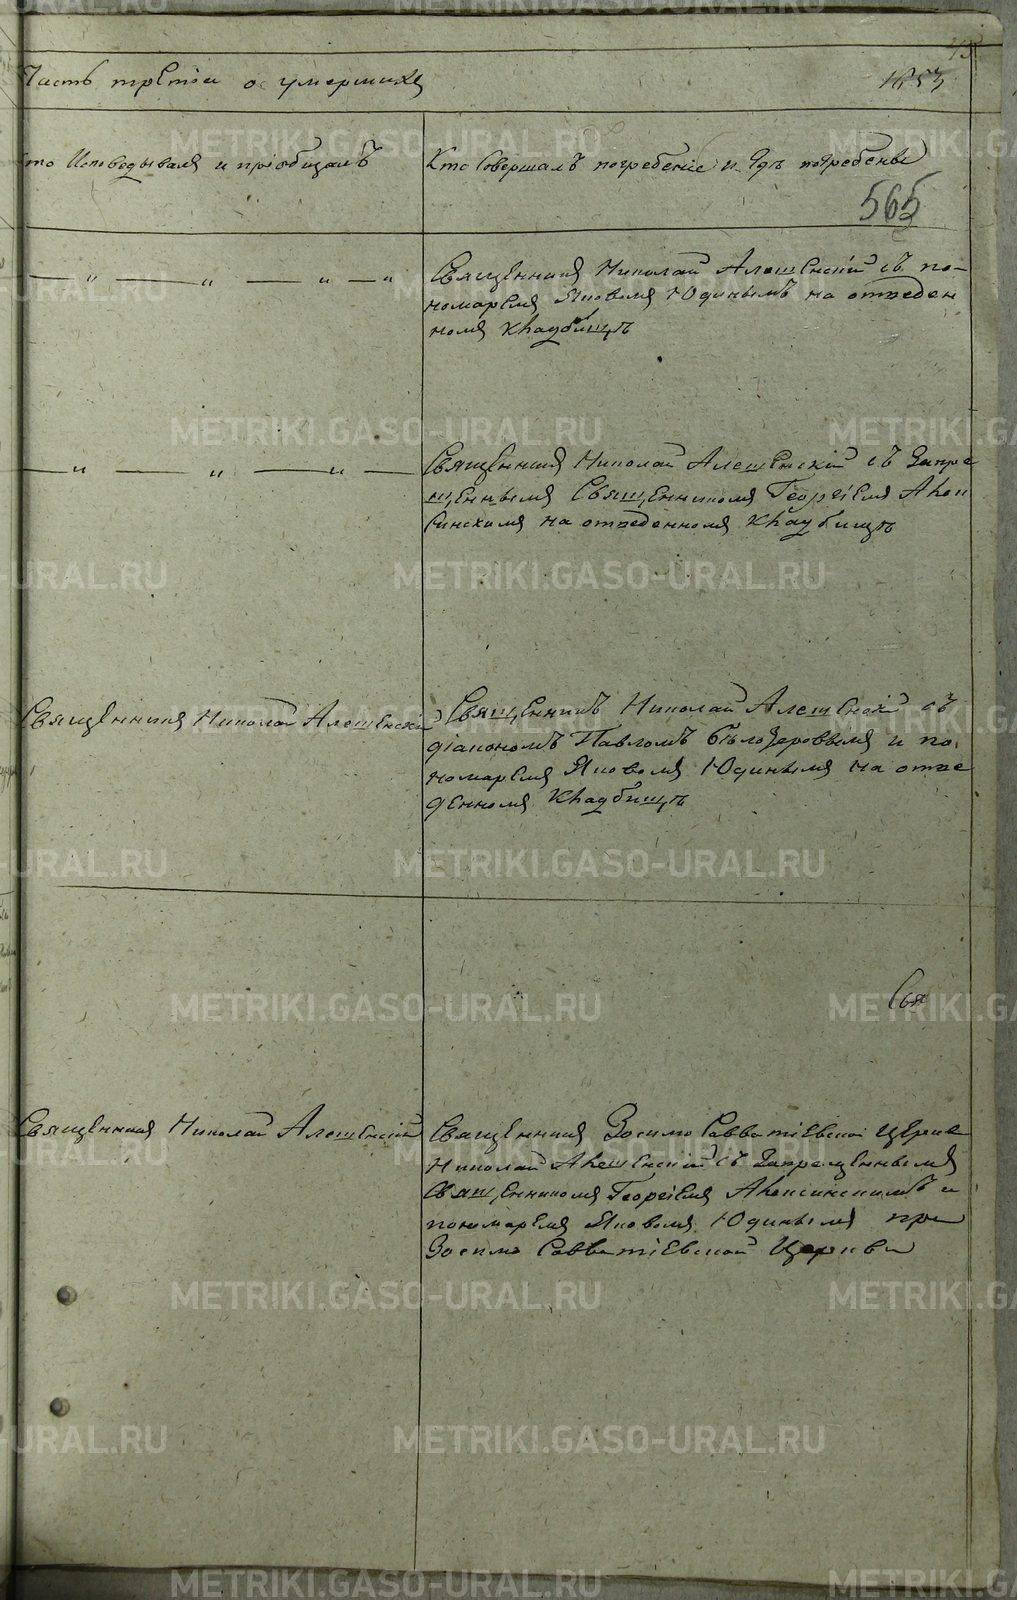 Часть третія о умершихъ
1853
Кто Исповѣдывалъ и пріобщалъ
Кто Совершалъ погребеніе и гдѣ погребены
565
— " — " — " — "
Священникъ Николай Алешенскій съ по-
номаремъ Яковомъ Юдинымъ на отведен
номъ кладбищѣ
— " — " — " —
Священникъ Николай Алешенскій съ Запре
щеннымъ Священникомъ Георгіемъ
на отведенномъ кладбищѣ
Священникъ Николай Алешенскій
Священникъ Николай Алешенскій съ
діакономъ Павломъ Бѣлозеровымъ и по
номаремъ Яковомъ Юдинымъ на отве
денномъ кладбищѣ
Священникъ Николай Алешенскій
Священникъ Зосимо Савватіевской Церкви
Николай Алешенскій съ Запрещеннымъ
Священникомъ Георгіемъ и
пономаремъ Яковомъ Юдинымъ при
Зосимо Савватіевской Церкви
METRIKI.GASO-URAL.RU